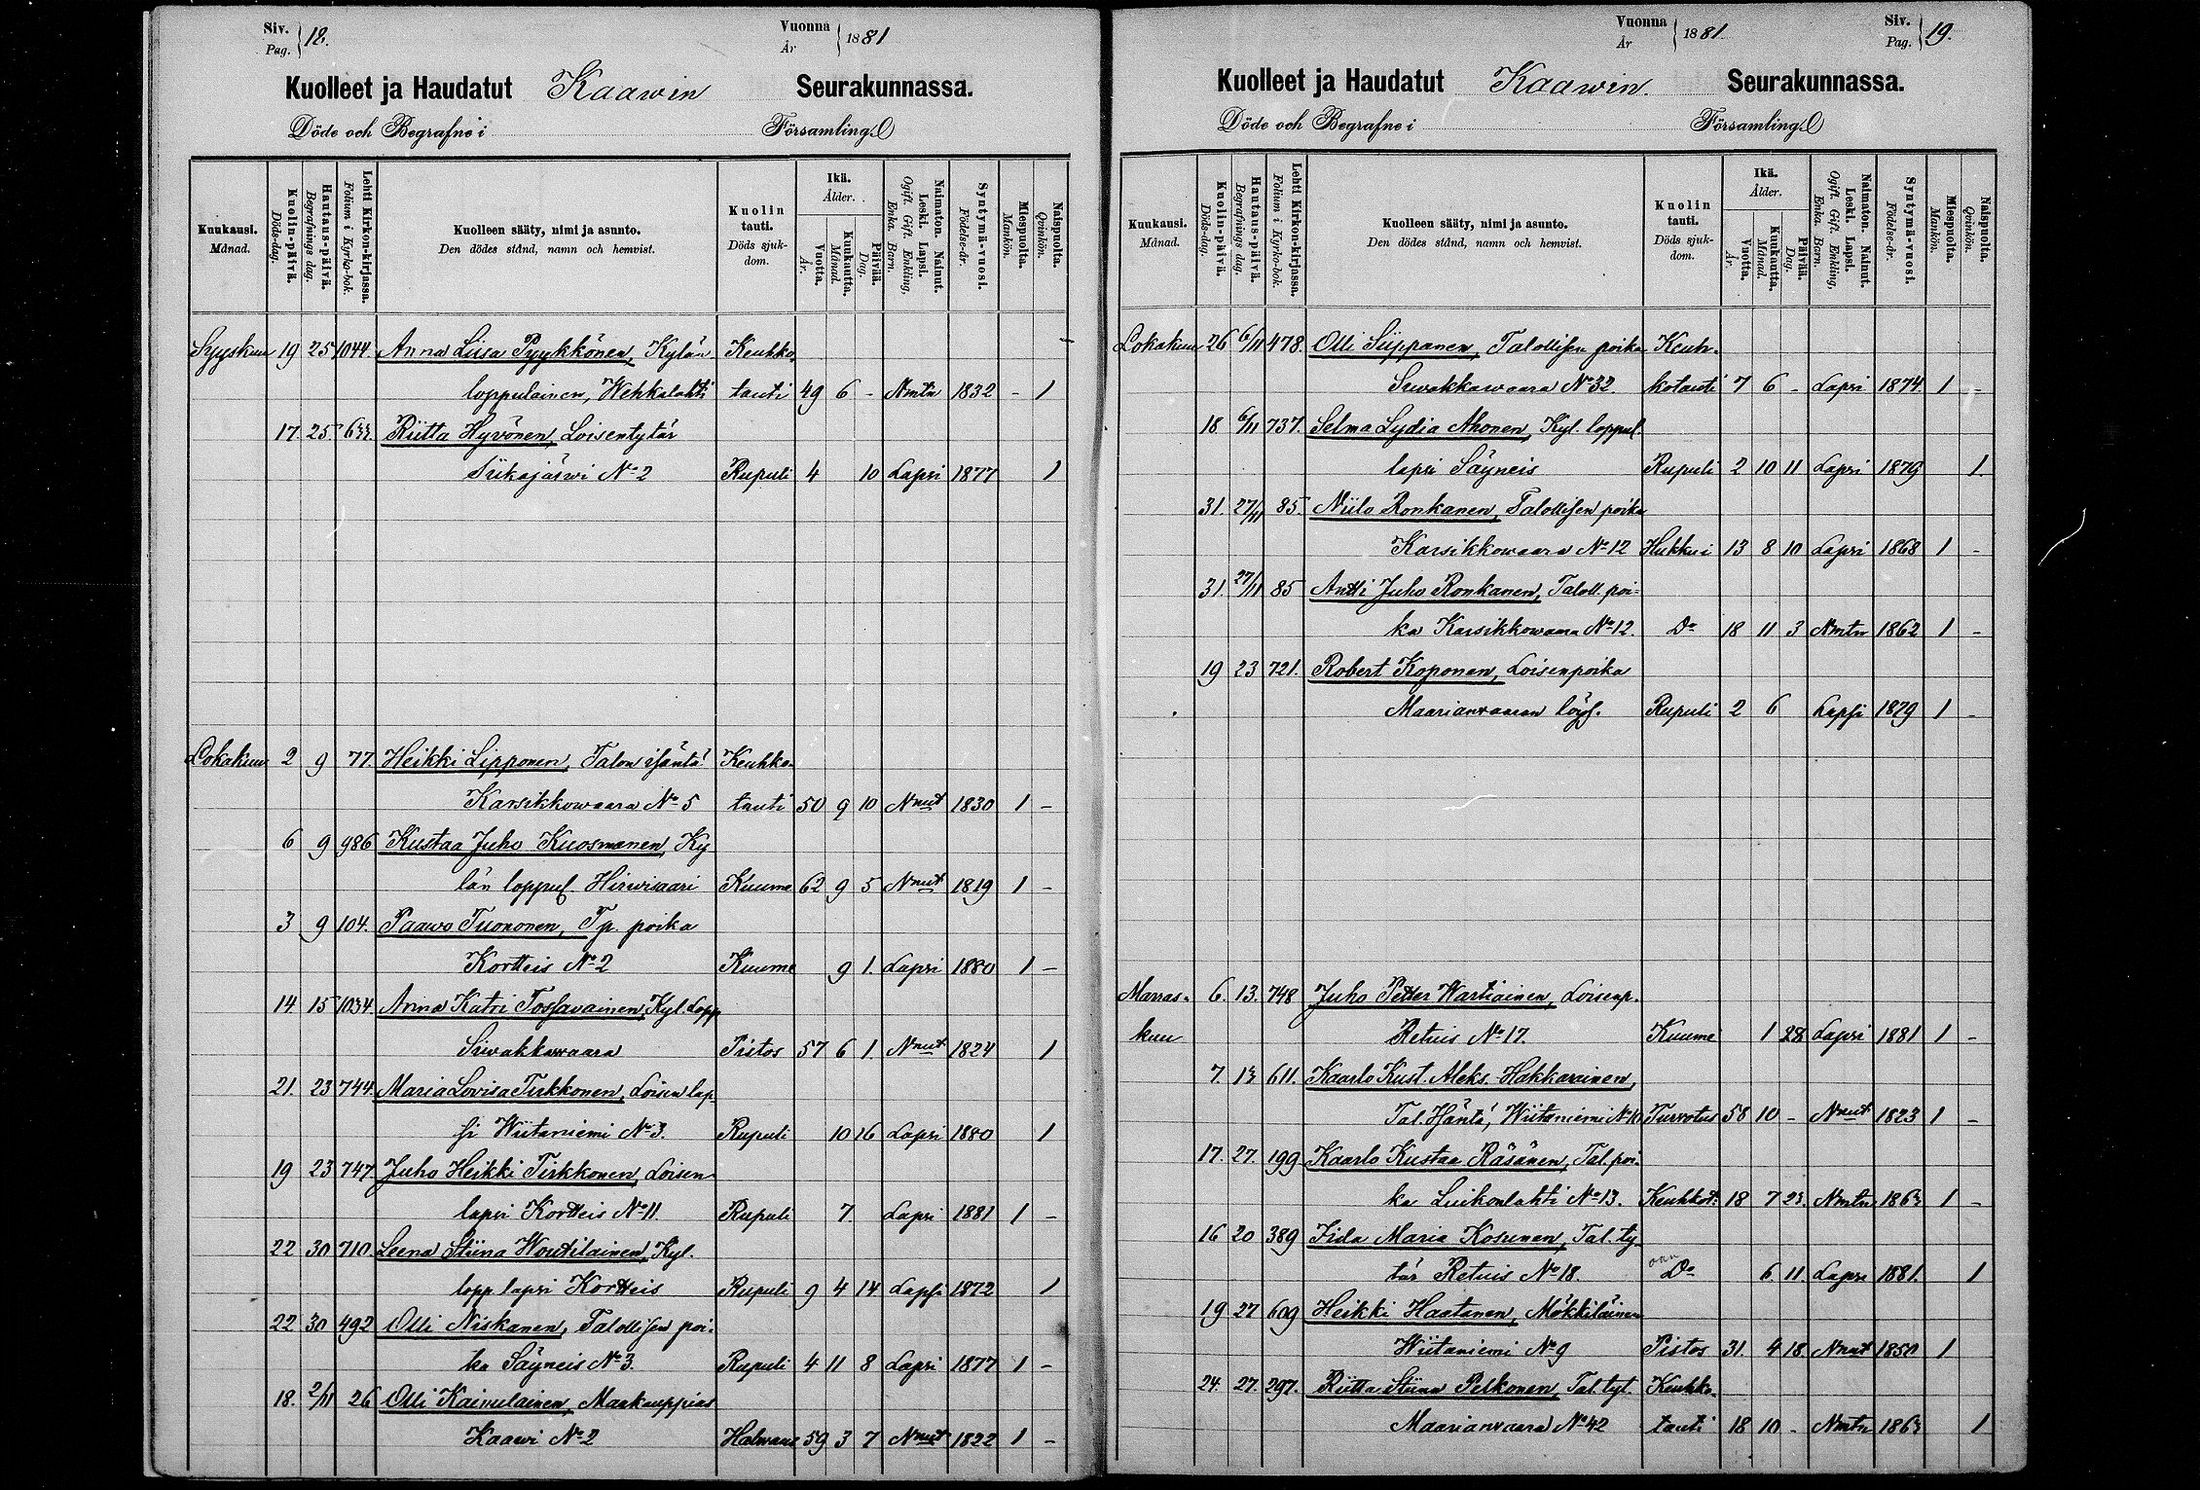 Siv. Pag. 18. Vuonna År 1881
Kuolleet ja Haudatut Kaawin Seurakunnassa.
Döde och Begrafne i Församling.
Kuukausi. Månad. Kuolin-päivä. Döds-dag. Hautaus-päivä. Begrafnings dag. Lehti Kirkon-kirjassa. Folium i Kyrko-bok. Kuolleen sääty, nimi ja asunto. Den dödes stånd, namn och hemvist. Kuolin tauti. Döds sjuk-dom. Ikä. Ålder. Vuotta. År. Kuukautta. Månad. Päivää. Dag. Naimaton. Nainut. Leski. Lapsi. Ogift. Gift. Enkling, Enka. Barn. Syntymä-vuosi. Födelse-år. Miespuolta. Mankön. Naispuolta. Qvinkön.
Syyskuu 19 25 1044. Anna Liisa Pyykkönen, Kylän Keuhko
loppulainen, Wehkalahti tauti 49 6 - Nmtn 1832 - 1
17. 25. 633. Riitta Hyvönen, Loisentytär
Siikajärwi No 2 Rupuli 4 10 Lapsi 1877 1
Lokakuu 2 9 77. Heikki Lipponen, Talon isäntä Keuhko-
Karsikkowaara No 5 tauti 50 9 10 Nnut 1830 1 -
6 9 986 Kustaa Juho Kuosmanen, Ky
län loppul Hirwisaari Kuume 62 9 5 Nnut 1819 1 -
3 9 104. Paawo Tuononen, Tp. poika
Kortteis No 2 Kuume 9 1. Lapsi 1880 1 -
14 15 1034. Anna Katri Tossavainen, Kyl. Lopp
Siwakkawaara Pistos 57 6 1. Nnut 1824 1
21. 23 744. Maria Lovisa Tirkkonen, Loisen lap-
si Wiitaniemi No 3. Rupuli 10 16 Lapsi 1880 1
19 23 747. Juho Heikki Tirkkonen, Loisen
lapsi Kortteis No 11. Rupuli 7 Lapsi 1881 1 -
22 30 710. Leena Stiina Woutilainen, Kyl.
lopp lapsi Kortteis Rupuli 9 4 14 Lapsi 1872 1
22 30 492 Olli Niskanen, Talollisen poi-
ka Säyneis No 3. Rupuli 4 11 8 Lapsi 1877 1 -
18. 2/11 26 Olli Kainulainen, Maakauppias
Kaawi No 2 Halwaus 59 3 7 Nnut 1822 1 -
Vuonna År 1881. Siv. Pag. 19.
Kuolleet ja Haudatut Kaawin. Seurakunnassa.
Döde och Begrafne i Församling.
Kuukausi. Månad. Kuolin-päivä. Döds-dag. Hautaus-päivä. Begrafnings dag. Lehti Kirkon-kirjassa. Folium i Kyrko-bok. Kuolleen sääty, nimi ja asunto. Den dödes stånd, namn och hemvist. Kuolin tauti. Döds sjuk-dom. Ikä. Ålder. Vuotta. År. Kuukautta. Månad. Päivää. Dag. Naimaton. Nainut. Leski. Lapsi. Ogift. Gift. Enkling, Enka. Barn. Syntymä-vuosi. Födelse-år. Miespuolta. Mankön. Naispuolta. Qvinkön.
Lokakuu 26 6/11 478. Olli Siippanen, Talollisen poika Keuh-
Siwakkawaara No 32. kotauti 7 6 - Lapsi 1874. 1 -
18 6/11 737. Selma Lydia Ahonen, Kyl. loppul.
lapsi Säyneis Rupuli 2 10 11 Lapsi 1879 1.
31. 27/11 85. Niilo Ronkanen, Talollisen poika
Karsikkowaara No 12 Hukkui 13 8 10 Lapsi 1868 1 -
31. 27/11 85 Antti Juho Ronkanen, Taloll. poi-
ka Karsikkowaara No 12. Do 18 11 3 Nmtn 1862 1 -
19 23 721. Robert Koponen, Loisenpoika
Maarianwaaran löys. Rupuli 2 6 Lapsi 1879 1 -
Marras- 6. 13. 748 Juho Petter Wartiainen, Loisenp.
kuu Retuis No 17. Kuume 1 28 Lapsi 1881 1 -
7. 13 611. Kaarlo Kust. Aleks. Hakkarainen,
Tal. Isäntä, Wiitaniemi No 10 Turvotus 58 10 - Nnut 1823 1 -
17. 27. 199 Kaarlo Kustaa Räsänen, Tal. poi-
ka Luikonlahti No 13. Keuhkot: 18 7 23. Nmtn 1863 1 -
16 20 389 Iida Maria Kosunen, Tal. ty-
tär Retuis No 18. Do 6 11 Lapsi 1881. 1
19 27 609 Heikki Haatanen, Mökkiläinen
Wiitaniemi No 9 Pistos 31. 4 18. Nnut 1850 1
24. 27. 297. Riitta Stiina Pelkonen, Tal. tyt. Keuhko-
Maarianwaara No 42 tauti 18 10 - Nmtn 1863 1